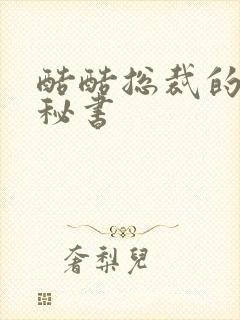 酷酷总裁的
秘书
奢梨儿